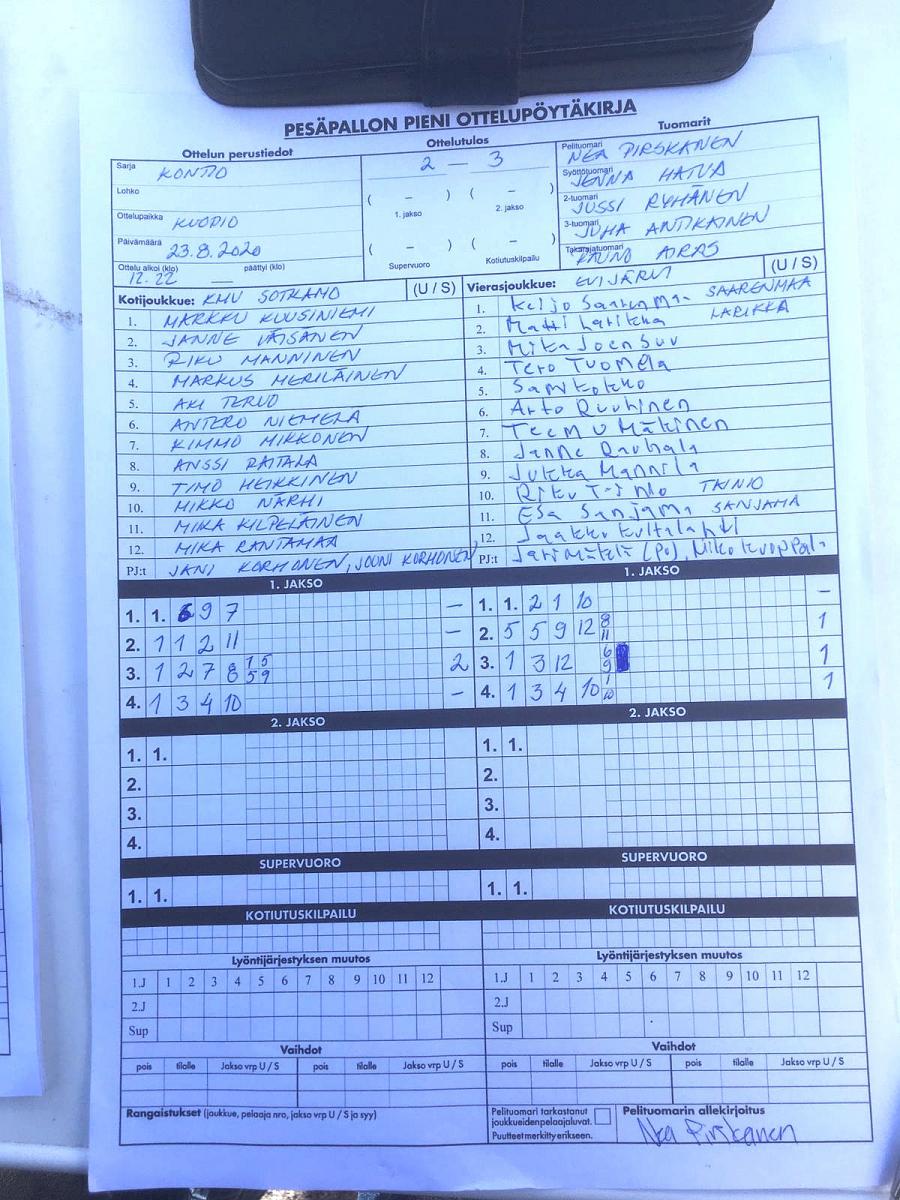 PESÄPALLON PIENI OTTELUPÖYTÄKIRJA
Ottelun perustiedot Ottelutulos Tuomarit
Sarja KONTIO
Lohko
Ottelupaikka KUOPIO
Päivämäärä 23.8.2020
Ottelu alkoi (klo) 12.22 päättyi (klo) —
2 — 3
( – ) ( – )
1. jakso 2. jakso
( – ) ( – )
Supervuoro Kotiutuskilpailu
Pelituomari NEA PIRSKANEN
Syöttötuomari JENNA HATVA
2-tuomari JUSSI RYHÄNEN
3-tuomari JUHA ANTIKAINEN
Takarajatuomari RAUNO AIRAS
Kotijoukkue: KMV SOTKAMO (U / S)
1. MARKKU KUUSINIEMI
2. JANNE VÄISÄNEN
3. RIKU MANNINEN
4. MARKUS MERILÄINEN
5. AKI TERVO
6. ANTERO NIEMELÄ
7. KIMMO MIKKONEN
8. ANSSI RAITALA
9. TIMO HEIKKINEN
10. MIKKO NÄRHI
11. MIKA KILPELÄINEN
12. MIKA RANTAMAA
PJ:t JANI KORHONEN, JOUNI KORHONEN
Vierasjoukkue: EVIJÄRVI (U / S)
1. Keijo Saarenmaa SAARENMAA
2. Matti Larikka LARIKKA
3. Mika Joensuu
4. Tero Tuomela
5. Sami Kokko
6. Arto Ruuhinen
7. Teemu Mäkinen
8. Janne Rauhala
9. Jukka Mannila
10. Riku Tainio TAINIO
11. Esa Sanjama SANJAMA
12. Jaakko Kultalahti
PJ:t Jari Mäkelä (PJ), Niko Kuoppala
1. JAKSO
1. 1. 6 9 7 —
2. 1 1 2 11 —
3. 1 2 7 8 1 5 5 9 2
4. 1 3 4 10 —
1. JAKSO
1. 1. 2 1 10 —
2. 5 5 9 12 8 11 1
3. 1 3 12 6 9 1
4. 1 3 4 10 1 10 1
2. JAKSO
1. 1.
2.
3.
4.
2. JAKSO
1. 1.
2.
3.
4.
SUPERVUORO
1. 1.
SUPERVUORO
1. 1.
KOTIUTUSKILPAILU
KOTIUTUSKILPAILU
Lyöntijärjestyksen muutos
1.J 1 2 3 4 5 6 7 8 9 10 11 12
2.J
Sup
Lyöntijärjestyksen muutos
1.J 1 2 3 4 5 6 7 8 9 10 11 12
2.J
Sup
Vaihdot
pois tilalle Jakso vrp U / S pois tilalle Jakso vrp U / S
Vaihdot
pois tilalle Jakso vrp U / S pois tilalle Jakso vrp U / S
Rangaistukset (joukkue, pelaaja nro, jakso vrp U / S ja syy)
Pelituomari tarkastanut
joukkueidenpelaajaluvat.
Puutteet merkitty erikseen.
Pelituomarin allekirjoitus
Nea Pirskanen